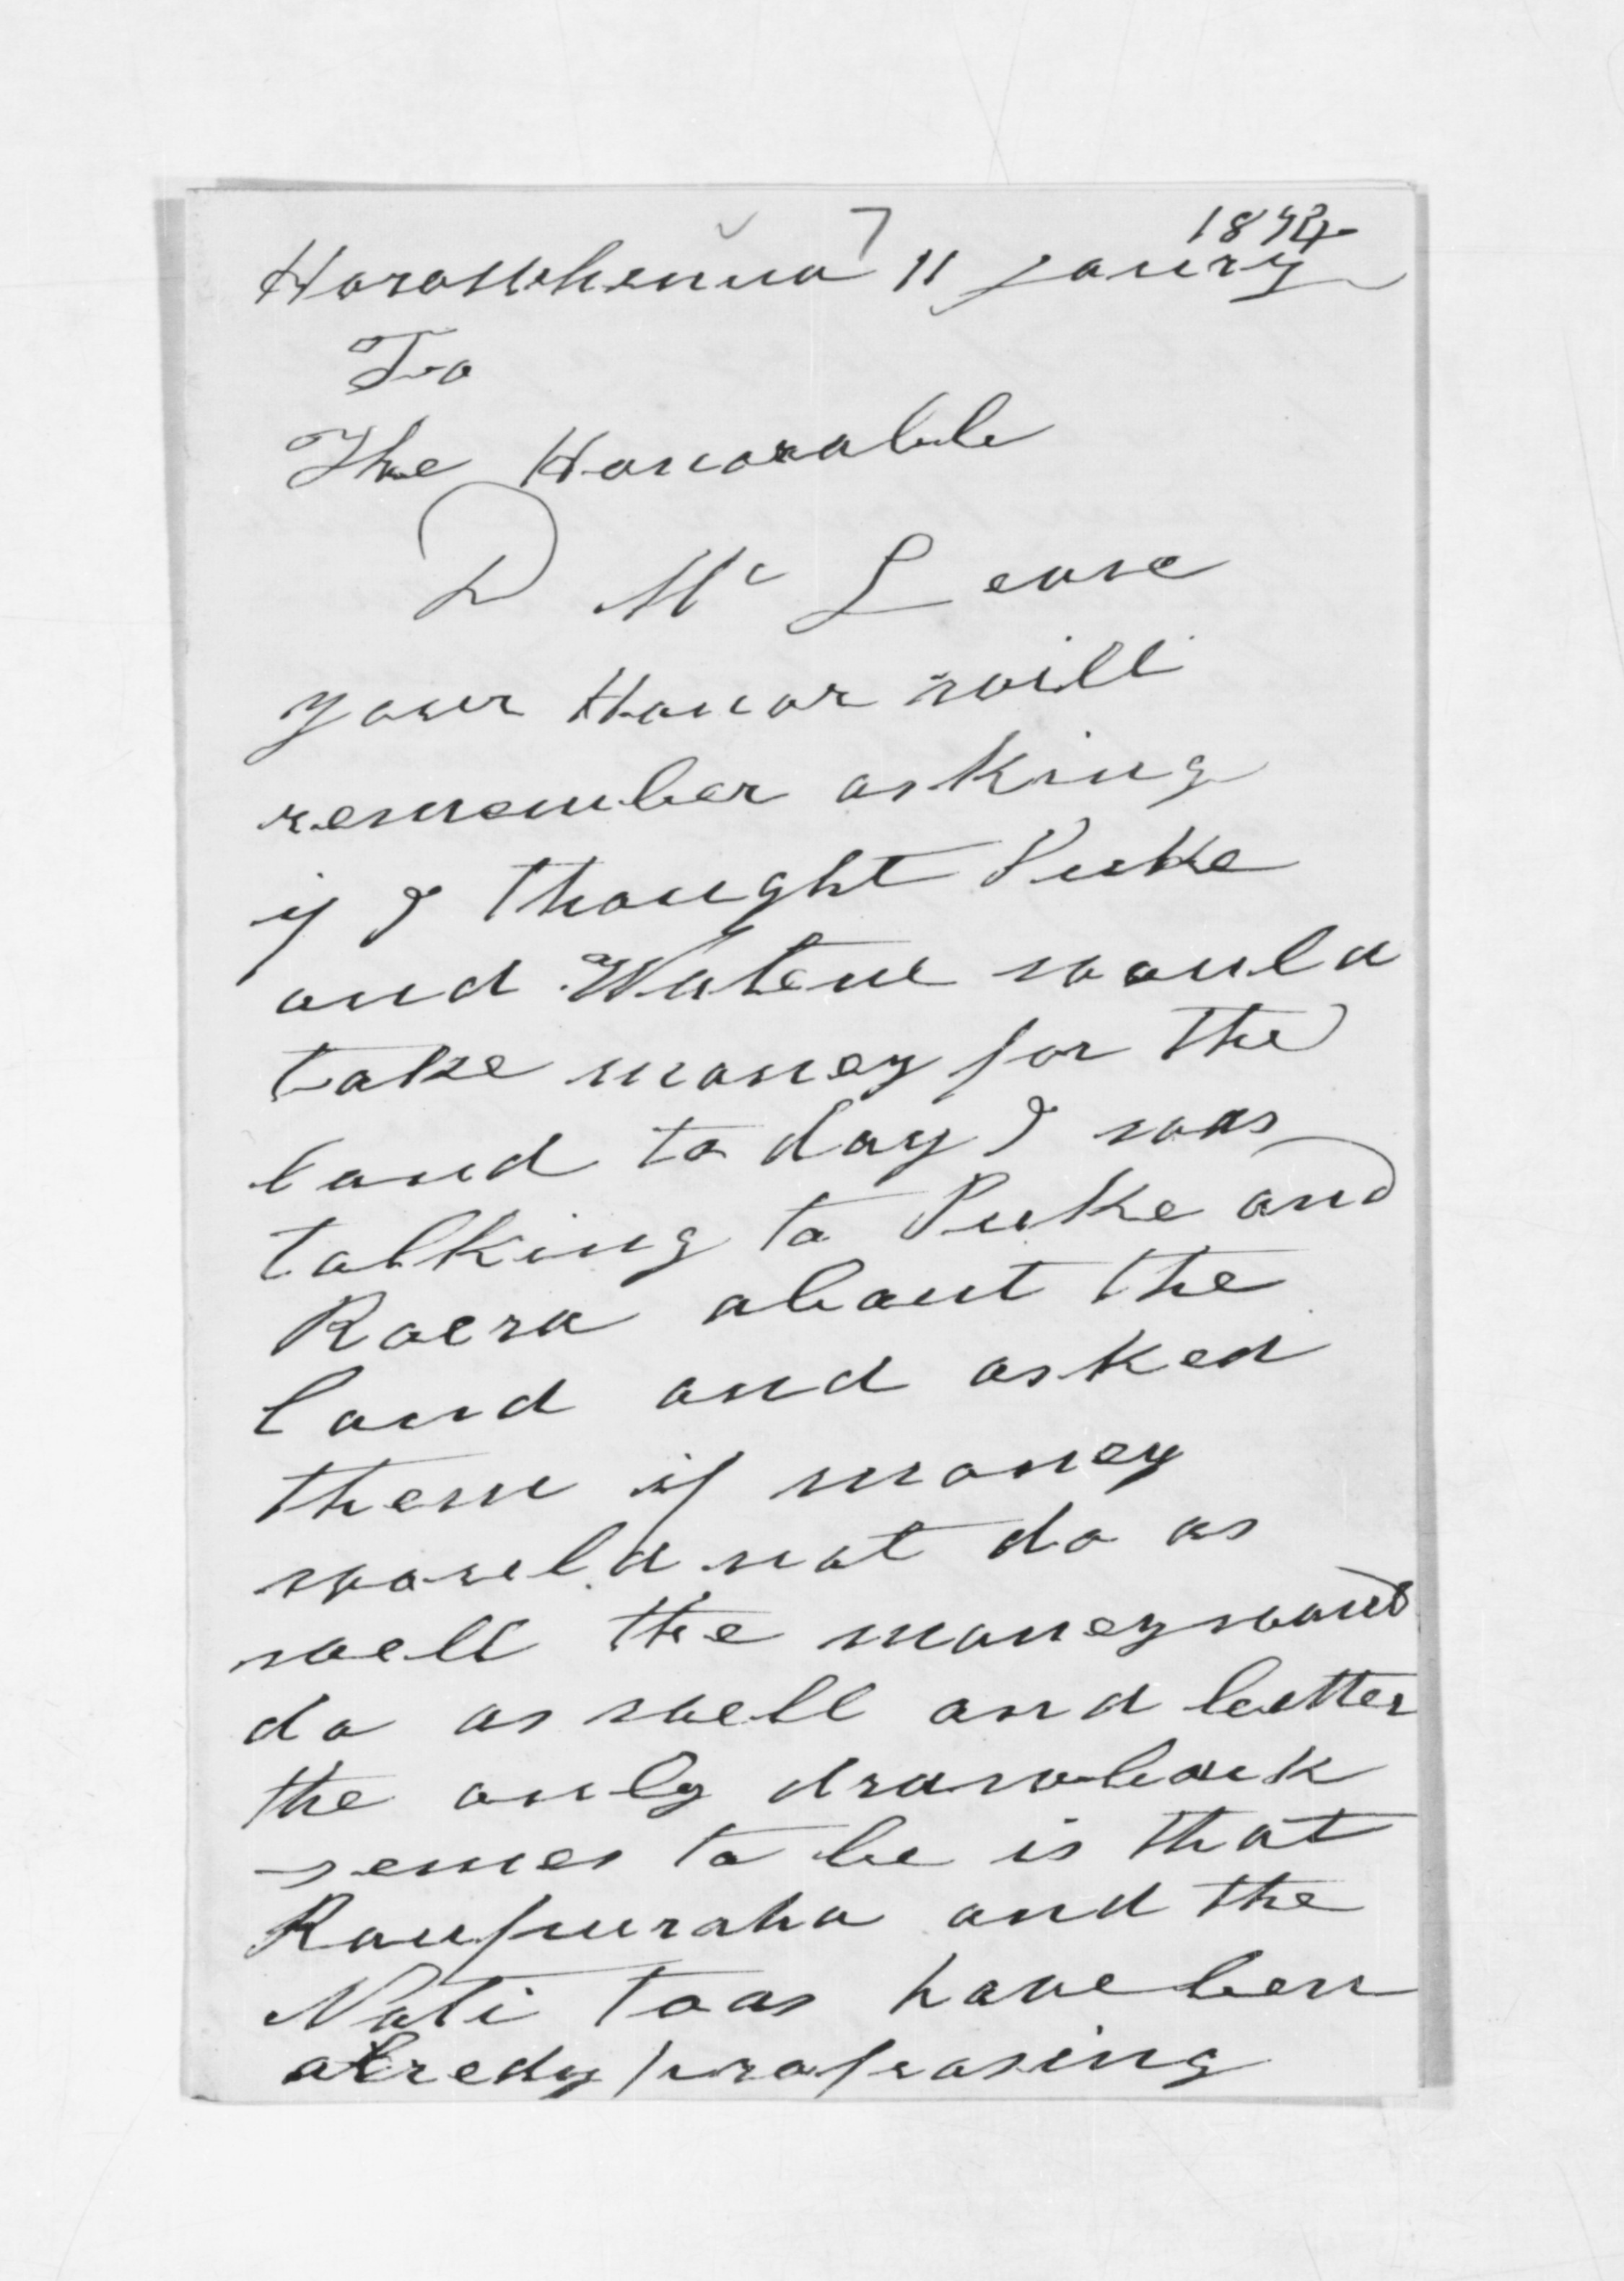 7
1874
HoroWhenua 11 Janury
To
The Honorable
D Mc Leane
your Honor will
remember asking
if I thought Puke
and Watene would
take money for the
land to day I was
talking to Puke and
Roera about the
land and asked
them if money
would not do as
well the money would
do as well and better
the only drawback
semes to be is that
Raupuraha and the
Nati toas have ben
alredy proposing